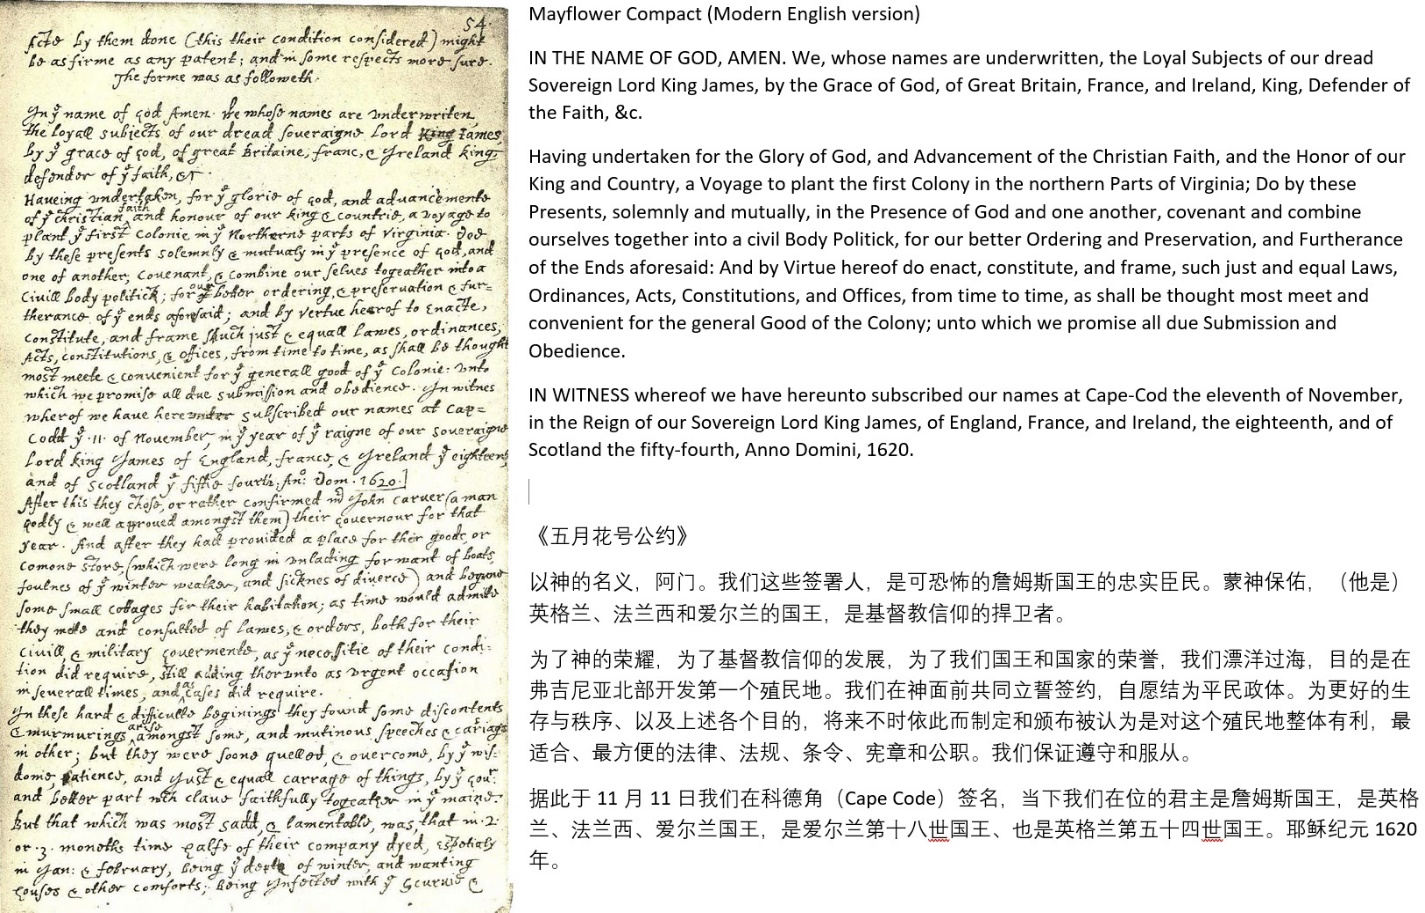 54.
Acts by them done (this their condition considered) might
be as firme as any patent; and in some respects more sure.
The forme was as followeth.
In yͤ name of god Amen. We whose names are underwriten,
the loyall subjects of our dread soveraigne Lord King James
by yͤ grace of god, of great Britaine, franc, & Ireland king,
defender of yͤ faith, &c.
Haveing undertaken, for yͤ glorie of god, and advancemente
of yͤ christian faith and honour of our king & countrie, a voyage to
plant yͤ first colonie in yͤ Northerne parts of Virginia. Doe
by these presents solemnly & mutualy in yͤ presence of god, and
one of another, covenant, & combine our selves togeather into a
Civill body politick; for our better ordering, & preservation & fur=
therance of yͤ ends aforesaid; and by vertue hearof to Enacte,
constitute, and frame shuch just & equall lawes, ordinances,
Acts, constitutions, & offices, from time to time, as shall be thought
most meete & convenient for yͤ generall good of yͤ Colonie: Unto
which we promise all due submission and obedience. In witnes
wherof we have hereunder subscribed our names at Cap=
Codd yͤ .11. of November, in yͤ year of yͤ raigne of our soveraigne
Lord king James of England, france, & Ireland yͤ eighteenth
and of Scotland yͤ fiftie fourth. An°: Dom. 1620.]
After this they chose, or rather confirmed mͬ John Carver (a man
godly & well approved amongst them) their Governour for that
year. And after they had provided a place for their goods, or
comone store, (which were long in unlading for want of boats,
foulnes of yͤ winter weather, and sicknes of diverce) and begune
some small cottages for their habitation; as time would admitte
they mette and consulted of lawes, & orders, both for their
civill & military Govermente, as yͤ necessitie of their condi-
tion did require, still adding therunto as urgent occasion
in severall times, and as cases did require.
In these hard & difficulte beginings they found some discontents
& murmurings arise amongst some, and mutinous speeches & cariags
in other; but they were soone quelled, & overcome, by yͤ wis-
dome, patience, and just & equall carrage of things, by yͤ Govͬ
and better part wͨh clave faithfully togeather in yͤ maine.
But that which was most sadd, & lamentable, was, that in .2.
or .3. moneths time halfe of their company dyed, espetialy
in Jan: & february, being yͤ depth of winter, and wanting
houses & other comforts; being Infected with yͤ Scurvie &
Mayflower Compact (Modern English version)
IN THE NAME OF GOD, AMEN. We, whose names are underwritten, the Loyal Subjects of our dread
Sovereign Lord King James, by the Grace of God, of Great Britain, France, and Ireland, King, Defender of
the Faith, &c.
Having undertaken for the Glory of God, and Advancement of the Christian Faith, and the Honor of our
King and Country, a Voyage to plant the first Colony in the northern Parts of Virginia; Do by these
Presents, solemnly and mutually, in the Presence of God and one another, covenant and combine
ourselves together into a civil Body Politick, for our better Ordering and Preservation, and Furtherance
of the Ends aforesaid: And by Virtue hereof do enact, constitute, and frame, such just and equal Laws,
Ordinances, Acts, Constitutions, and Offices, from time to time, as shall be thought most meet and
convenient for the general Good of the Colony; unto which we promise all due Submission and
Obedience.
IN WITNESS whereof we have hereunto subscribed our names at Cape-Cod the eleventh of November,
in the Reign of our Sovereign Lord King James, of England, France, and Ireland, the eighteenth, and of
Scotland the fifty-fourth, Anno Domini, 1620.
《五月花号公约》
以神的名义，阿门。我们这些签署人，是可恐怖的詹姆斯国王的忠实臣民。蒙神保佑，（他是）
英格兰、法兰西和爱尔兰的国王，是基督教信仰的捍卫者。
为了神的荣耀，为了基督教信仰的发展，为了我们国王和国家的荣誉，我们漂洋过海，目的是在
弗吉尼亚北部开发第一个殖民地。我们在神面前共同立誓签约，自愿结为平民政体。为更好的生
存与秩序、以及上述各个目的，将来不时依此而制定和颁布被认为是对这个殖民地整体有利，最
适合、最方便的法律、法规、条令、宪章和公职。我们保证遵守和服从。
据此于 11 月 11 日我们在科德角（Cape Code）签名，当下我们在位的君主是詹姆斯国王，是英格
兰、法兰西、爱尔兰国王，是爱尔兰第十八世国王、也是英格兰第五十四世国王。耶稣纪元 1620
年。